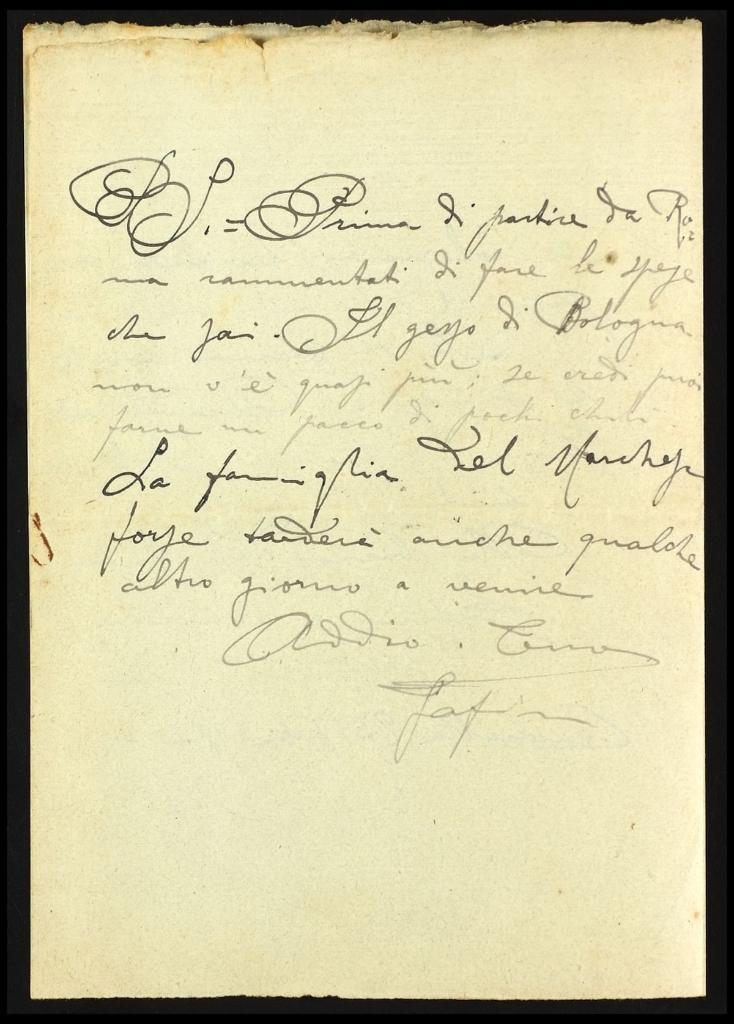 P.S. = Prima di partire da Ro=
ma rammentati di fare le spese
che sai. Il gesso di Bologna
non v'è quasi più; se credi puoi
farne un pacco di pochi chili
La famiglia del Marchese
forse tarderà anche qualche
altro giorno a venire
Addio. Tuo